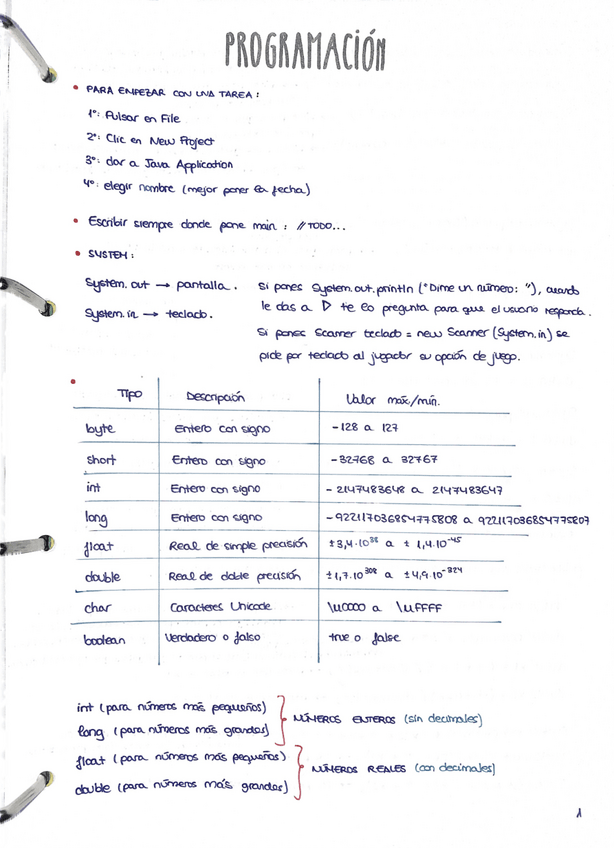 PROGRAMACIÓN
• PARA EMPEZAR CON UNA TAREA:
1º: Pulsar en File
2º: Clic en New Project
3º: dar a Java Application
4º: elegir nombre (mejor poner la fecha)
• Escribir siempre donde pone main: //TODO...
• SYSTEM:
System.out → pantalla. Si pones System.out.println ("Dime un número: "), cuando
le das a ▷ te lo pregunta para que el usuario responda.
System.in → teclado.
Si pones Scanner teclado = new Scanner (System.in) se
pide por teclado al jugador su opción de juego.
TIPO Descripción Valor max/mín.
byte Entero con signo -128 a 127
short Entero con signo -32768 a 32767
int Entero con signo -2147483648 a 2147483647
long Entero con signo -922117036854775808 a 922117036854775807
float Real de simple precisión ±3,4·10³⁸ a ±1,4·10⁻⁴⁵
double Real de doble precisión ±1,7·10³⁰⁸ a ±4,9·10⁻³²⁴
char Caracteres Unicode \u0000 a \uFFFF
boolean Verdadero o falso true o false
int (para números más pequeños)
long (para números más grandes)
NÚMEROS ENTEROS (sin decimales)
float (para números más pequeños)
double (para números más grandes)
NÚMEROS REALES (con decimales)
1